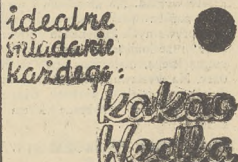 idealne
śniadanie
każdego:
kakao
Wedla